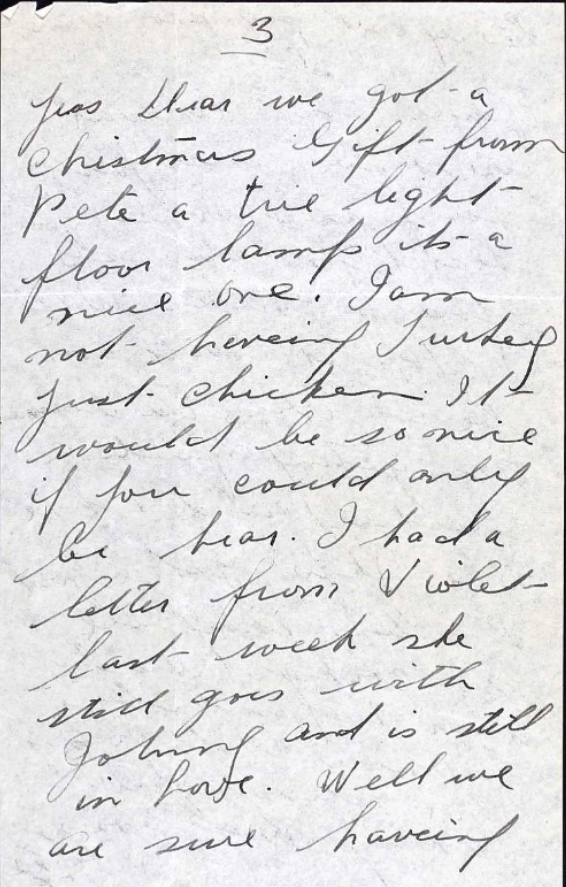 3
yes Dear we got a
Chistmas Gift from
Pete a trie light
floor lamp its a
nice one. I am
not haveing Turkey
just chicken. It
would be so nice
if you could only
be hear. I had a
letter from Violet
last week she
still goes with
Johnny and is still
in love. Well we
are sure haveing